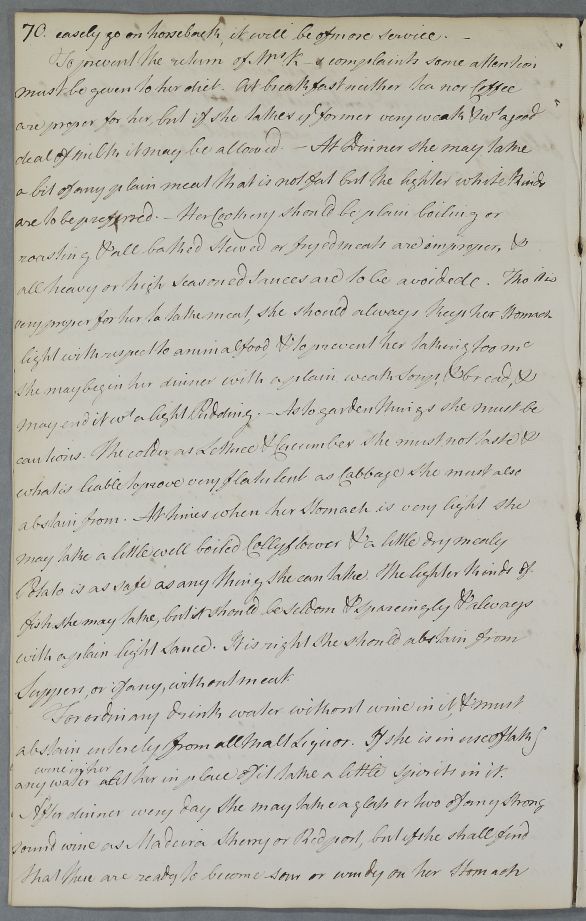 70. easely go on horseback, it will be of more service. —
To prevent the return of Mrs K—s complaints some attention
must be given to her diet. At breakfast neither tea nor Coffee
are proper for her, but if she takes ye former very weak & wt a good
deal of milk it may be allowed. — At Dinner she may take
a bit of any plain meat that is not fat but the lighter white kinds
are to be preferred. — Her Cookery should be plain boiling or
roasting & all bathed Stewed or fryed meats are improper, &
all heavy or high seasoned Sauces are to be avoided. Tho it is
very proper for her to take meat, she should always keep her Stomach
light with respect to animal food & to prevent her taking too mch
she may begin her dinner with a plain weak Soup, & bread, &
may end it wt a light Pudding. — As to garden things she must be
cautious. The colder as Lettuce & Cucumber she must not taste &
what is liable to prove very flatulent as Cabbage she must also
abstain from. At times when her Stomach is very light she
may take a little well boiled Collyflower & a little dry mealy
Potato is as safe as any thing she can take. The lighter kinds of
fish she may take, but it should be seldom & sparingly & always
with a plain light Sauce. It is right she should abstain from
Suppers, or if any, without meat
For ordinary drink water without wine in it, & must
abstain intirely from all Malt Liquor. If she is in use of takg
wine in her
any water let her in place of it take a little spirits in it.
After dinner every day she may take a glass or two of any strong
sound wine as Madeira Sherry or Red port, but if she shall find
that these are ready to become sour or windy on her Stomach